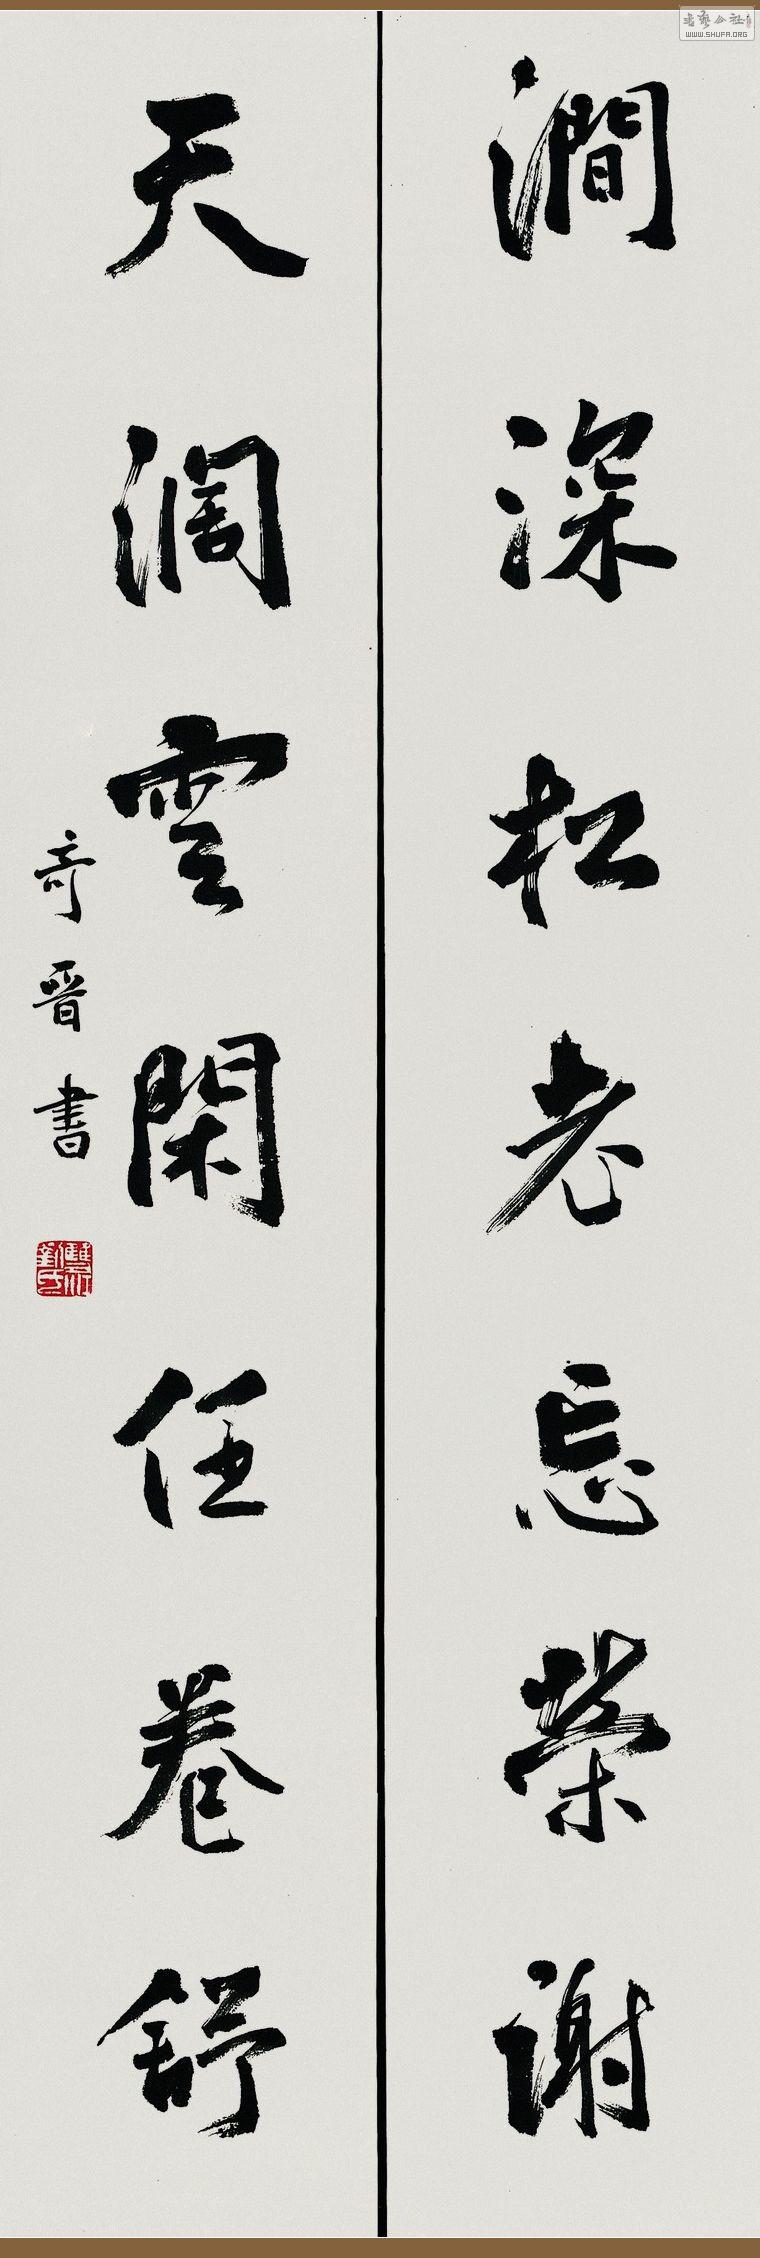 澗深松老忘榮谢
天濶雲閑任卷舒
奇晋書
書藝公社
WWW.SHUFA.ORG